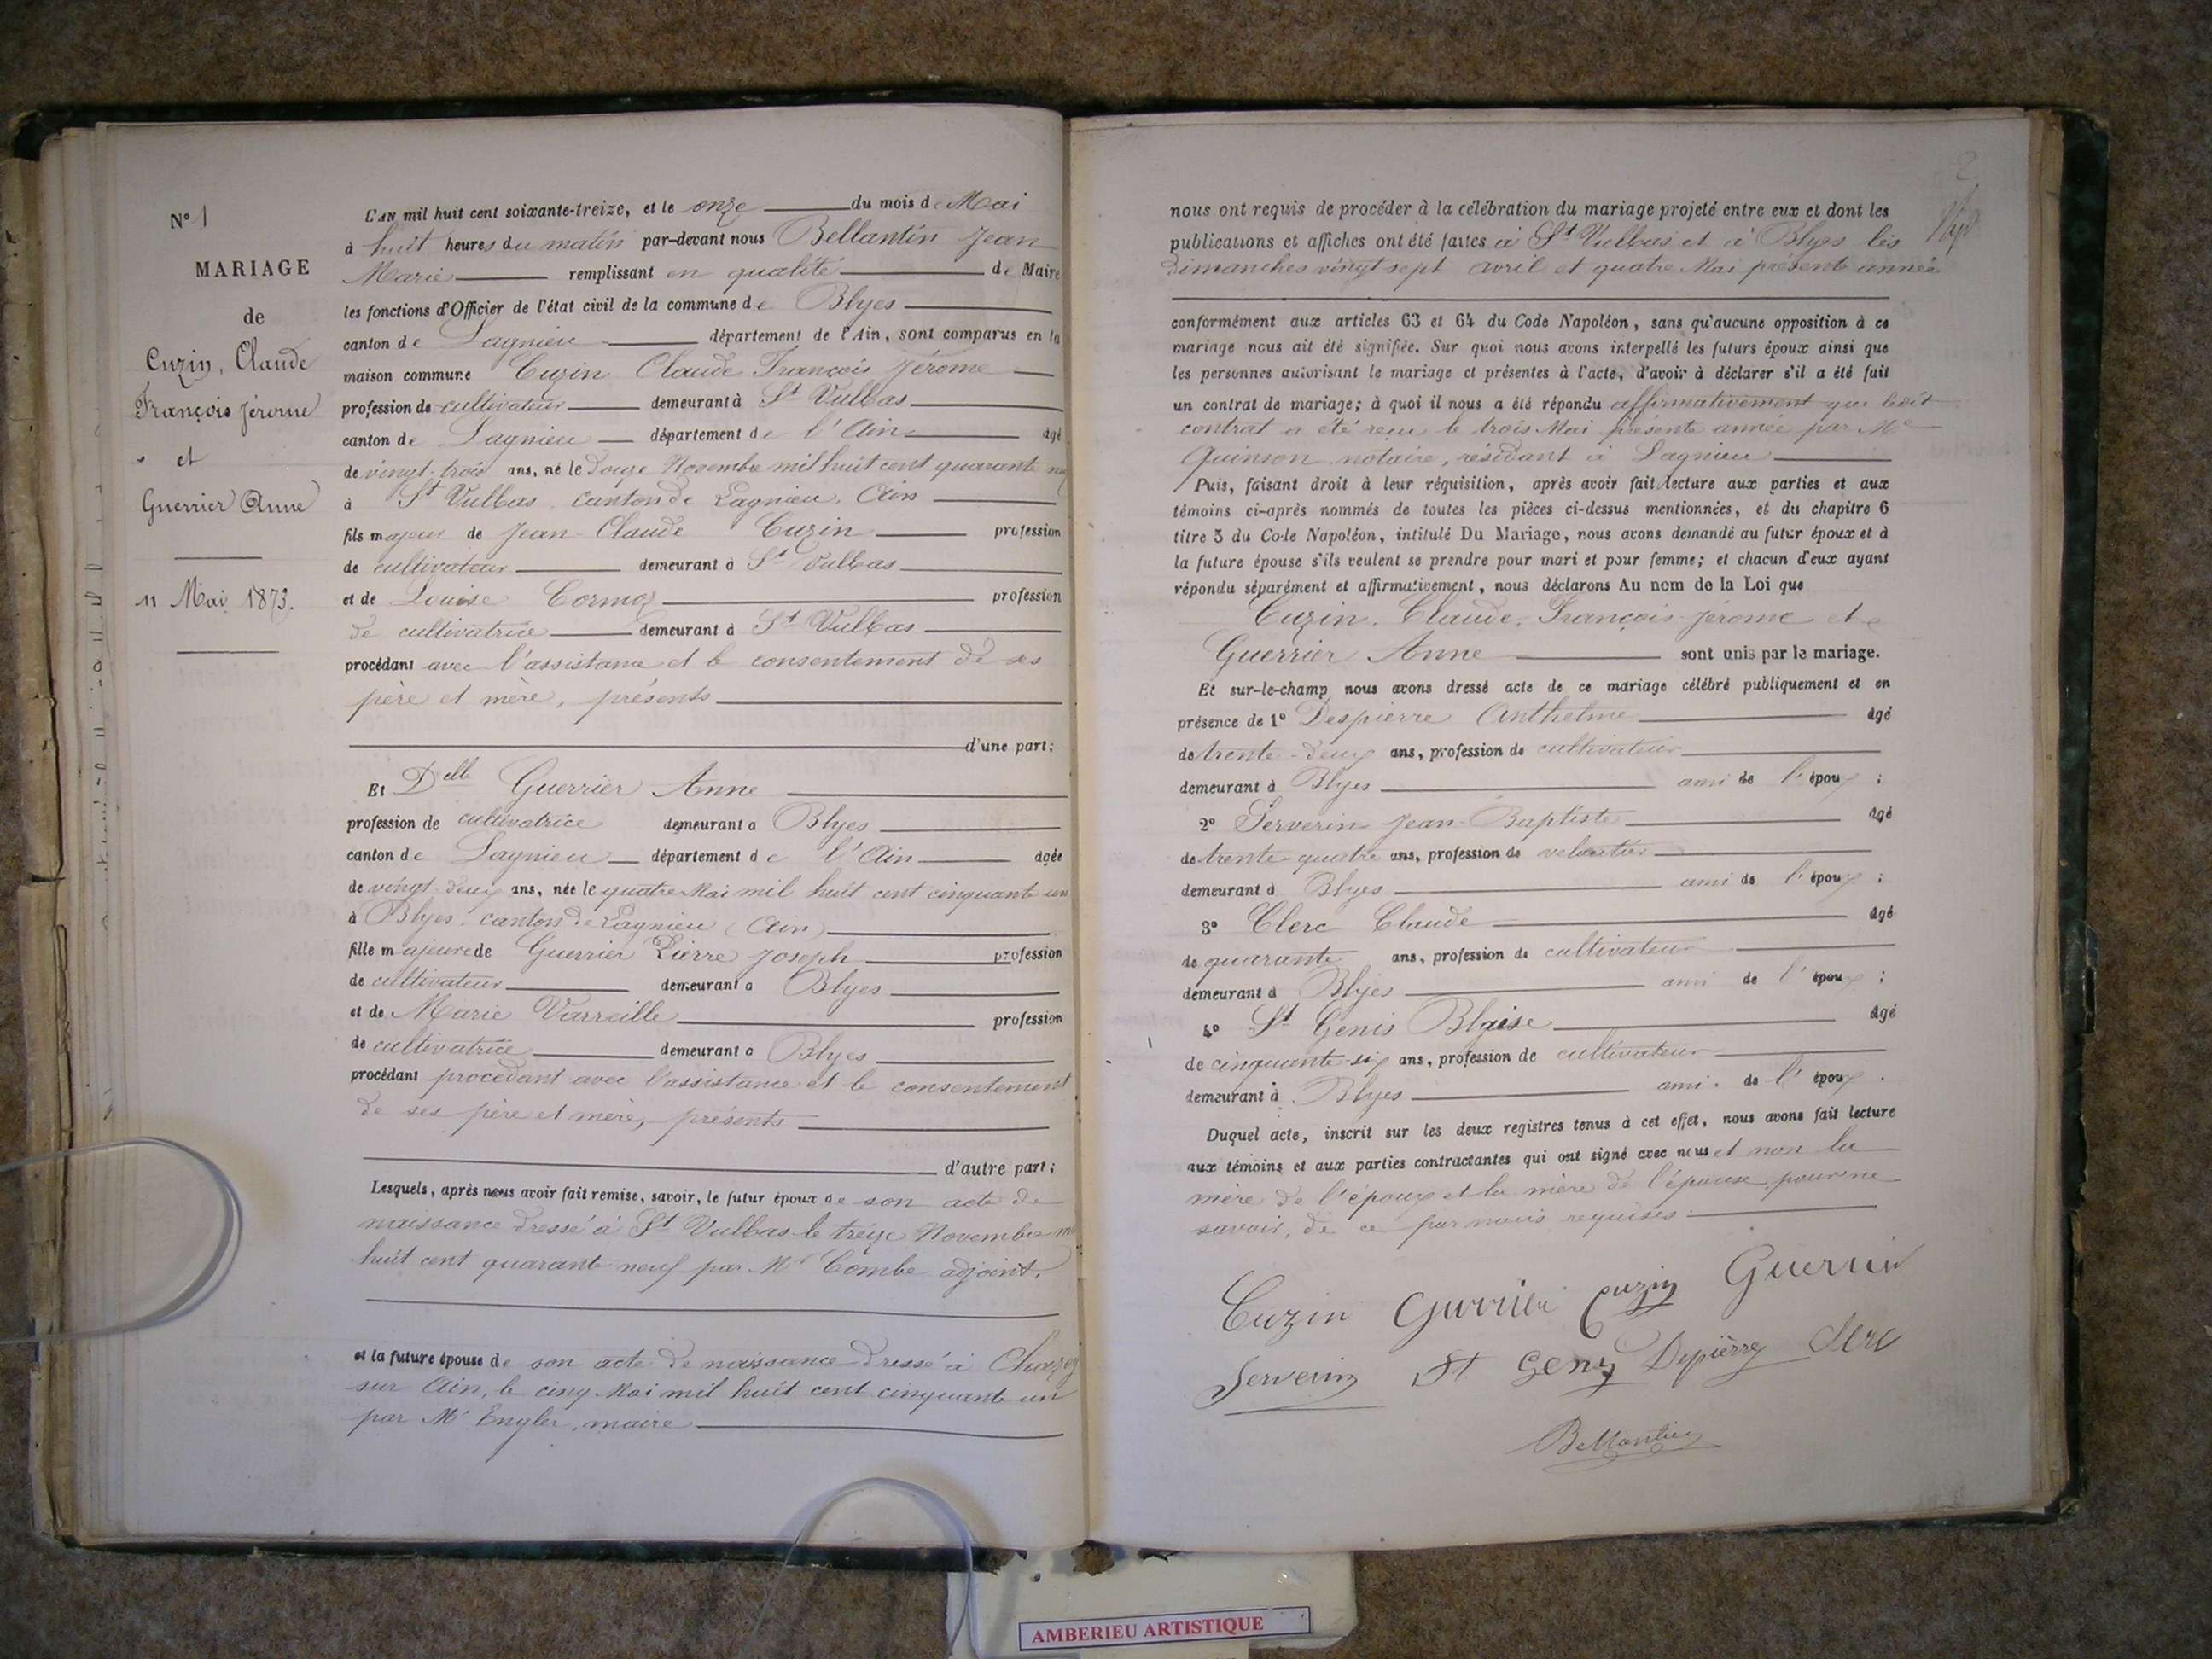 N° 1
MARIAGE
de
Cuzin, Claude
François Jérome
et
Guerrier Anne
11 Mai 1873.
L'AN mil huit cent soixante-treize, et le onze du mois de Mai
à huit heures du matin par-devant nous Bellantin Jean
Marie remplissant en qualité de Maire
les fonctions d'Officier de l'état civil de la commune de Blyes
canton de Lagnieu département de l'Ain, sont comparus en la
maison commune Cuzin Claude François Jérome
profession de cultivateur demeurant à St Vulbas
canton de Lagnieu département de l'Ain âgé
de vingt-trois ans, né le douze Novembre mil huit cent quarante
à St Vulbas, canton de Lagnieu, Ain
fils majeur de Jean Claude Cuzin profession
de cultivateur demeurant à St Vulbas
et de Louise Cormoz profession
de cultivatrice demeurant à St Vulbas
procédant avec l'assistance et le consentement de ses
père et mère, présents
d'une part;
Et Delle Guerrier Anne
profession de cultivatrice demeurant à Blyes
canton de Lagnieu département de l'Ain âgée
de vingt-deux ans, née le quatre Mai mil huit cent cinquante un
à Blyes, canton de Lagnieu (Ain)
fille majeure de Guerrier Pierre Joseph profession
de cultivateur demeurant à Blyes
et de Marie Varreille profession
de cultivatrice demeurant à Blyes
procédant procédant avec l'assistance et le consentement
de ses père et mère, présents
d'autre part;
Lesquels, après nous avoir fait remise, savoir, le futur époux de son acte de
naissance dressé à St Vulbas le treize Novembre mil
huit cent quarante neuf par Mr Combe adjoint.
et la future épouse de son acte de naissance dressé à Chazey
sur Ain, le cinq Mai mil huit cent cinquante un
par Mr Engler, maire
2
nous ont requis de procéder à la célébration du mariage projeté entre eux et dont les
publications et affiches ont été faites à St Vulbas et à Blyes les
dimanches vingt sept avril et quatre Mai présente année
conformément aux articles 63 et 64 du Code Napoléon, sans qu'aucune opposition à ce
mariage nous ait été signifiée. Sur quoi nous avons interpellé les futurs époux ainsi que
les personnes autorisant le mariage et présentes à l'acte, d'avoir à déclarer s'il a été fait
un contrat de mariage; à quoi il nous a été répondu affirmativement que ledit
contrat a été reçu le trois Mai présente année par Me
Quinson notaire, résidant à Lagnieu
Puis, faisant droit à leur réquisition, après avoir fait lecture aux parties et aux
témoins ci-après nommés de toutes les pièces ci-dessus mentionnées, et du chapitre 6
titre 5 du Code Napoléon, intitulé Du Mariage, nous avons demandé au futur époux et à
la future épouse s'ils veulent se prendre pour mari et pour femme; et chacun d'eux ayant
répondu séparément et affirmativement, nous déclarons Au nom de la Loi que
Cuzin, Claude, François Jérome et
Guerrier Anne sont unis par le mariage.
Et sur-le-champ nous avons dressé acte de ce mariage célébré publiquement et en
présence de 1° Despierre Anthelme âgé
de trente-deux ans, profession de cultivateur
demeurant à Blyes ami de l'époux ;
2° Serverin Jean-Baptiste âgé
de trente-quatre ans, profession de
demeurant à Blyes ami de l'époux ;
3° Clerc Claude âgé
de quarante ans, profession de cultivateur
demeurant à Blyes ami de l'époux ;
4° St Genis Blaise âgé
de cinquante-six ans, profession de cultivateur
demeurant à Blyes ami de l'époux.
Duquel acte, inscrit sur les deux registres tenus à cet effet, nous avons fait lecture
aux témoins et aux parties contractantes qui ont signé avec nous et non la
mère de l'époux et la mère de l'épouse pour ne
savoir, de ce par nous requises.
Cuzin Guerrier Cuzin Guerrier
Serverin St Geny Depierre Clerc
Bellantin
AMBERIEU ARTISTIQUE